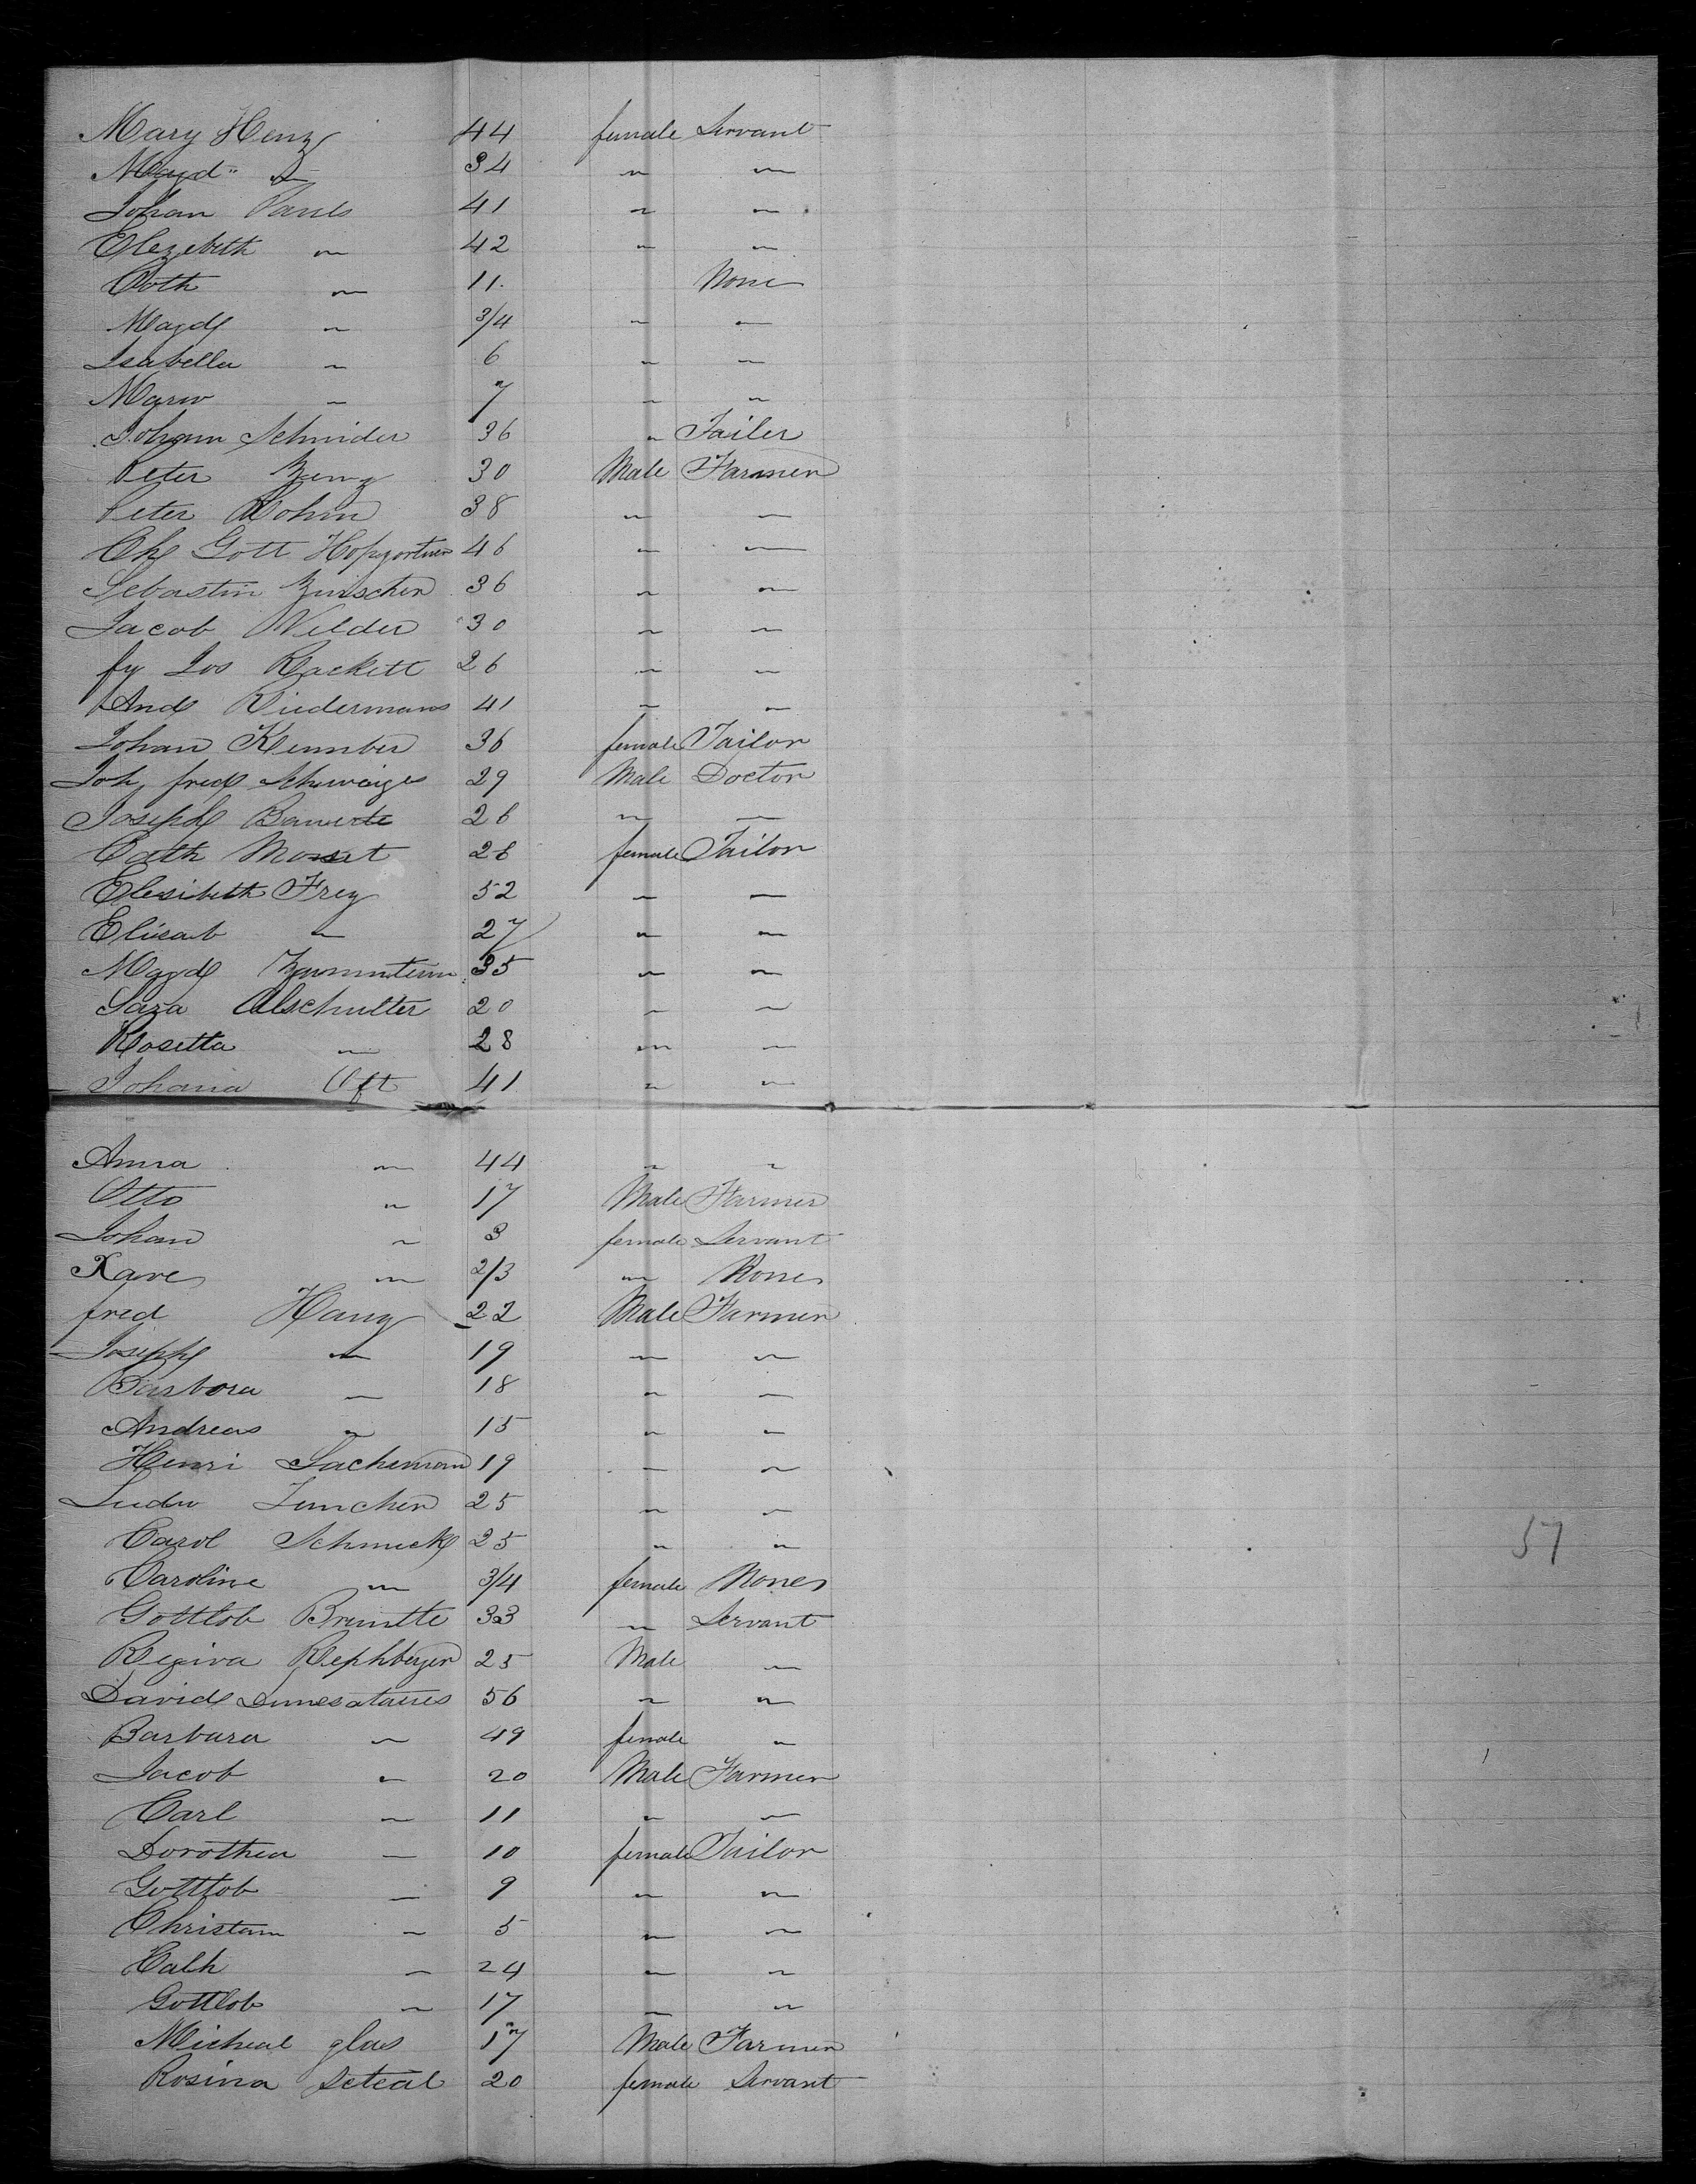 Mary Henz 44 female Servant
Magd " " 34 " "
Johan Pauls 41 " "
Elezebeth " 42 " "
Cath " 11. None
Magd " 3/4 " "
Isabella " 6 " "
Marw " 7 " "
Johann Schnider 36 " Tailer
Peter Zenz 30 Male Farmer
Peter Bohm 38 " "
Ch Gott Hopgortner 46 " "
Sebastin 36 " "
Jacob Wilder 30 " "
fy Jos Rackett 26 " "
And Riedermans 41 " "
Johan Kember 36 female Tailor
Joh fred Schweiges 29 Male Doctor
Joseph Bauerte 26 " "
Cath Mosset 26 female Tailor
Elesibeth Frey 52 " "
Elisab " 27 " "
Magd 35 " "
Sara Alschulter 20 " "
Rosetta " 28 " "
Johana Oft 41 " "
Anna " 44 " "
Otto " 17 Male Farmer
Johan " 3 female Servant
Xave " 2/3 " None
fred Haug 22 Male Farmer
Joseph " 19 " "
Barbora " 18 " "
Andreas " 15 " "
Henri Sacheman 19 " "
Ludw Juncher 25 " "
Carol Schmuck 25 " "
Caroline " 3/4 female None
Gottlob Bruntte 33 " Servant
Regiva Rephberger 25 Male "
David 56 " "
Barbara " 49 female "
Jacob " 20 Male Farmer
Carl " 11 " "
Dorothea " 10 female Tailor
Gottlob " 9 " "
Christam " 5 " "
Cath " 24 " "
Gottlob " 17 " "
Micheal glas 17 Male Farmer
Rosina Seteal 20 female Servant
57